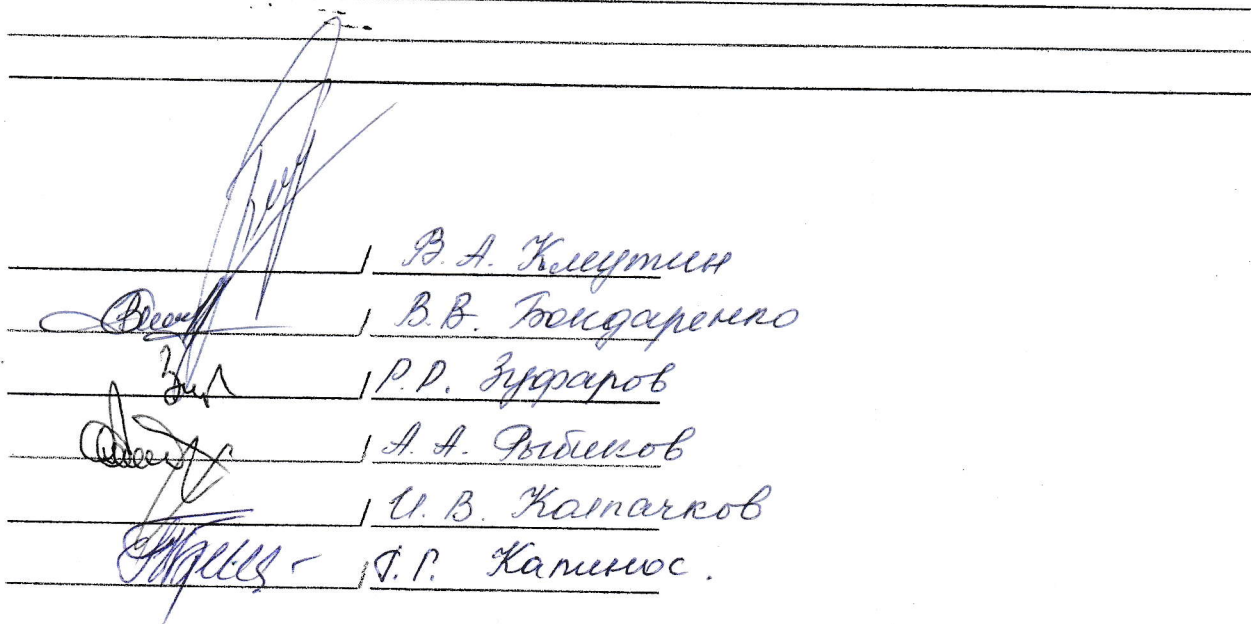 / В. А. Клеутин
/ В. В. Бондаренко
/ Р. Р. Зуфаров
/ А. А. Рыбиков
/ И. В. Колпачков
/ Г. Г. Капинос.